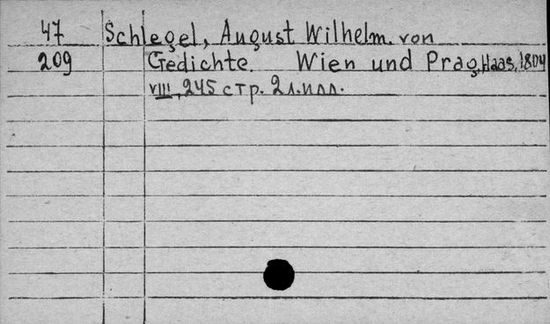 47 Schlegel, August Wilhelm. von
209 Gedichte. Wien und Prag, Haas, 1804
VIII, 245 стр. 2 л. илл.